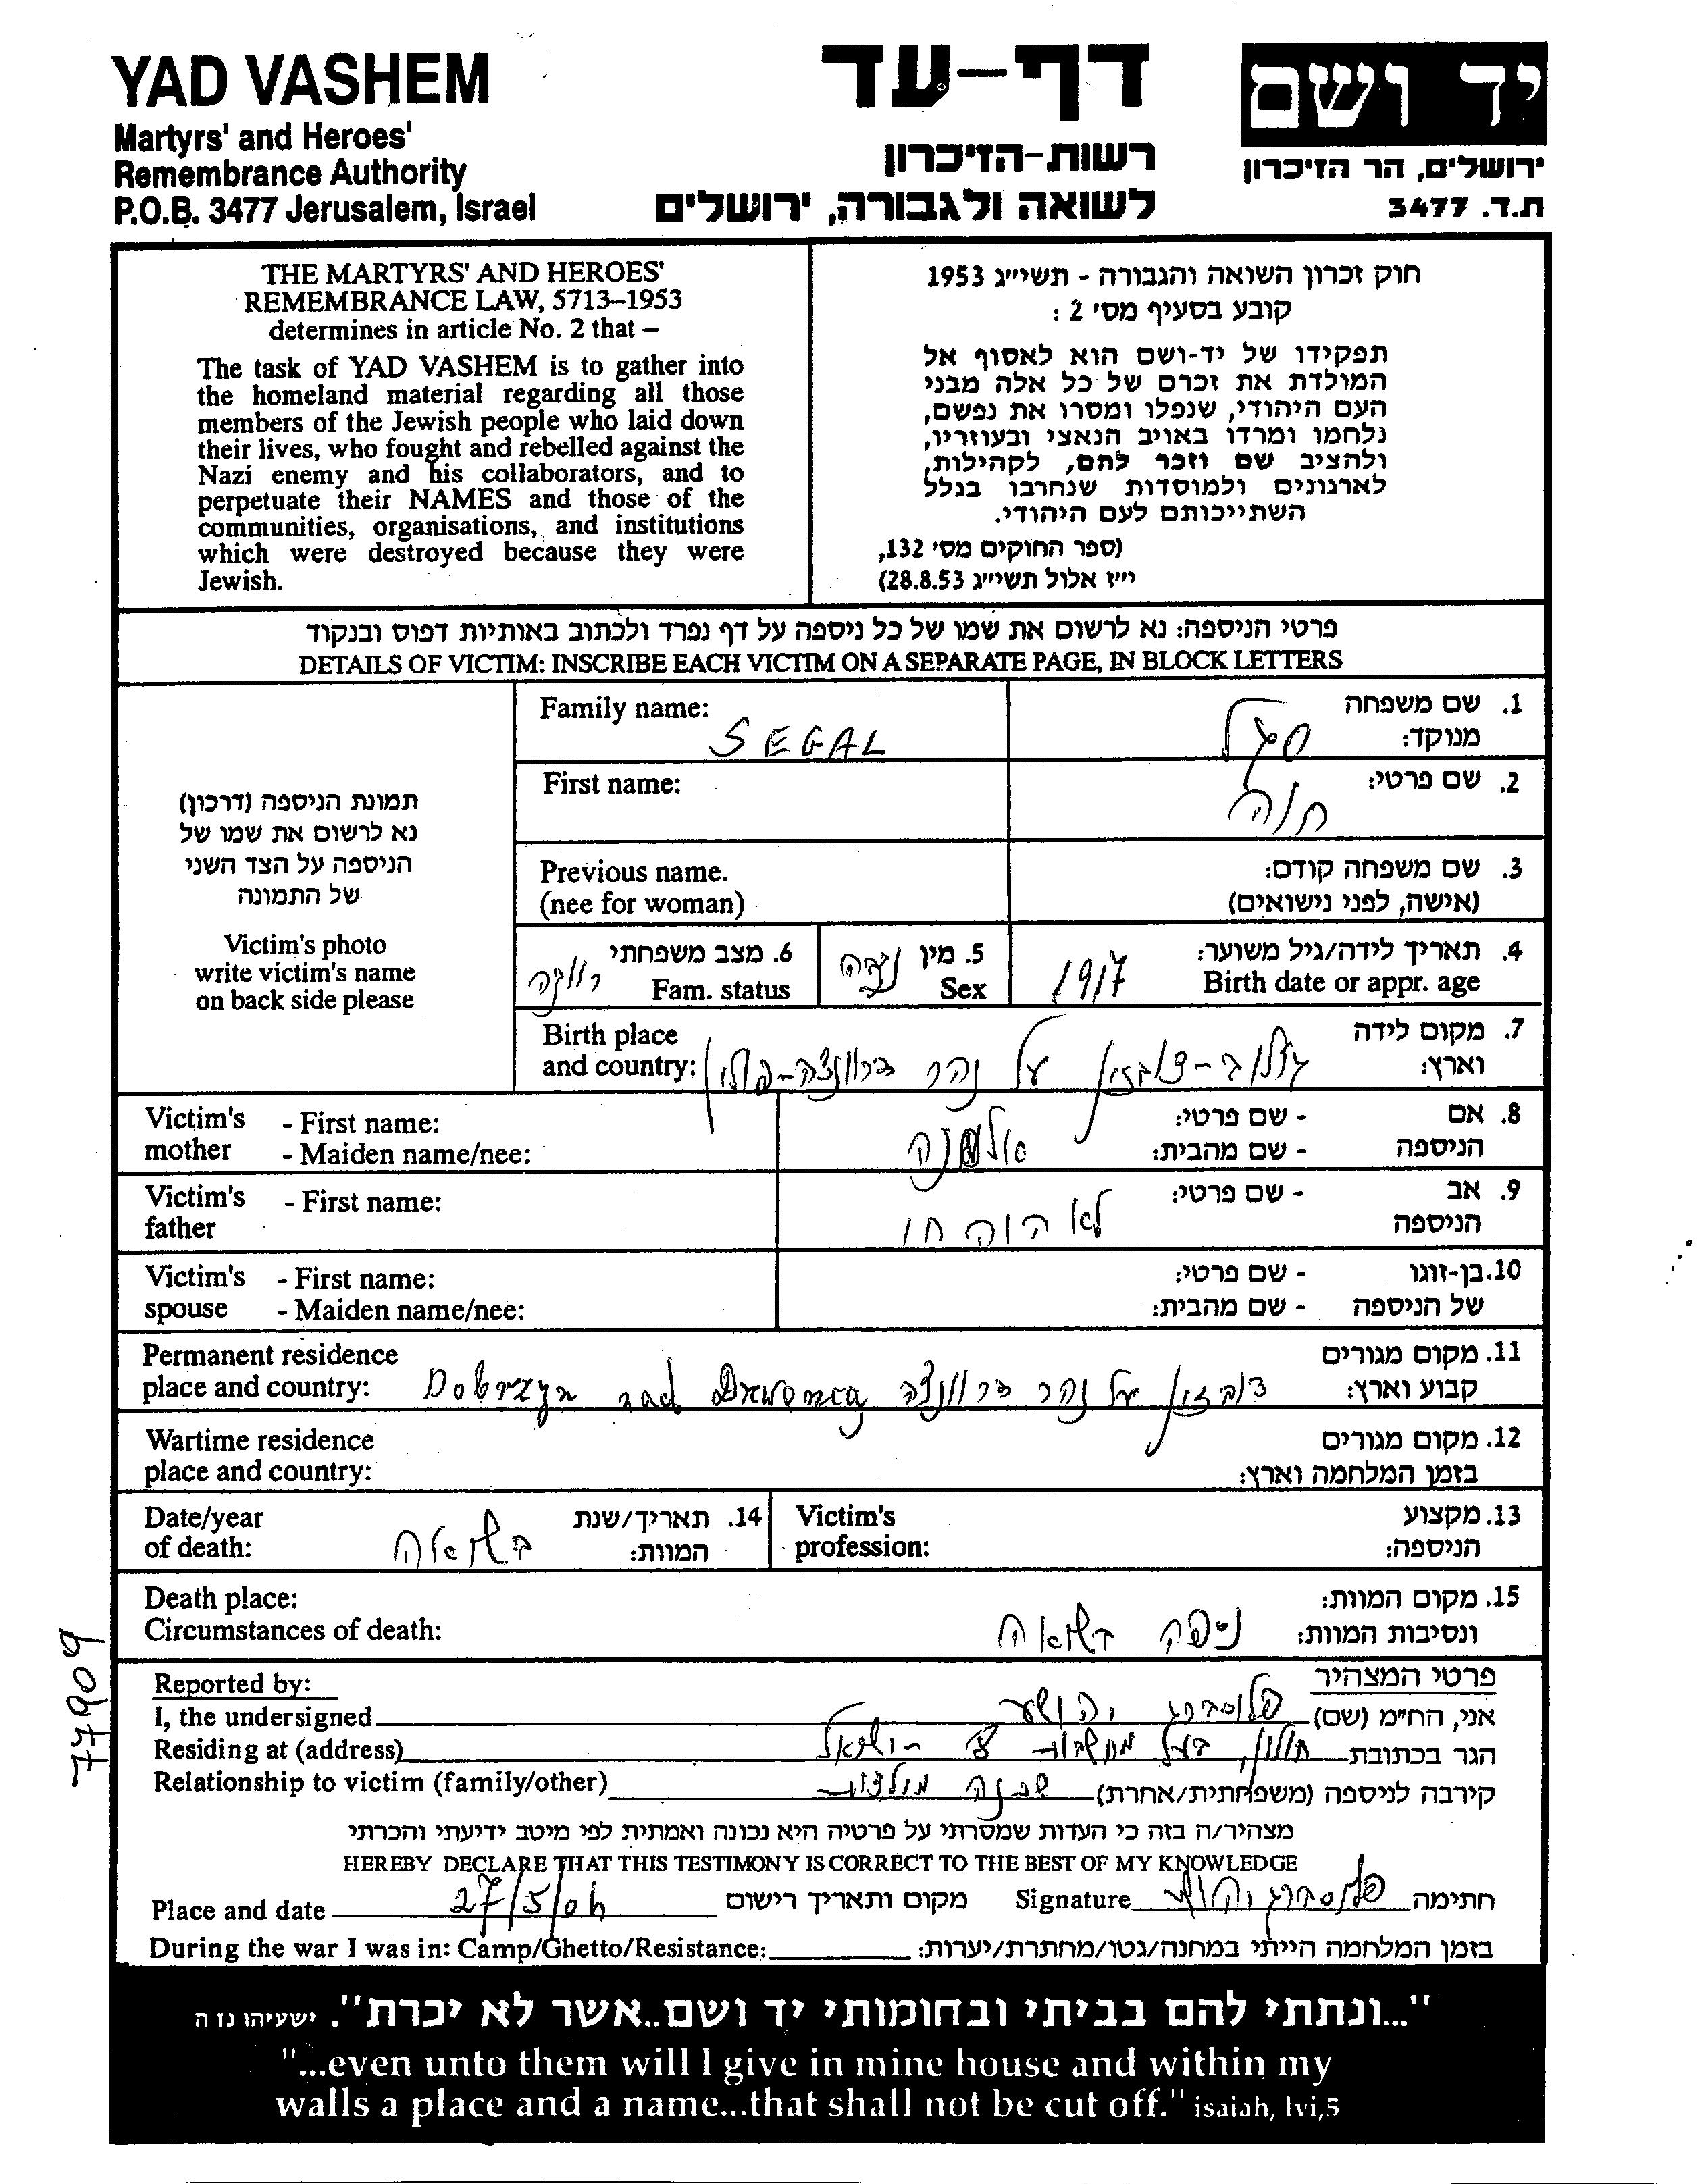 YAD VASHEM
Martyrs' and Heroes'
Remembrance Authority
P.O.B. 3477 Jerusalem, Israel
דף-עד
רשות-הזיכרון
לשואה ולגבורה, ירושלים
יד ושם
ירושלים, הר הזיכרון
ת.ד. 3477
THE MARTYRS' AND HEROES'
REMEMBRANCE LAW, 5713–1953
determines in article No. 2 that –
The task of YAD VASHEM is to gather into
the homeland material regarding all those
members of the Jewish people who laid down
their lives, who fought and rebelled against the
Nazi enemy and his collaborators, and to
perpetuate their NAMES and those of the
communities, organisations, and institutions
which were destroyed because they were
Jewish.
חוק זכרון השואה והגבורה - תשי״ג 1953
קובע בסעיף מס' 2 :
תפקידו של יד-ושם הוא לאסוף אל
המולדת את זכרם של כל אלה מבני
העם היהודי, שנפלו ומסרו את נפשם,
נלחמו ומרדו באויב הנאצי ובעוזריו,
ולהציב שם וזכר להם, לקהילות,
לארגונים ולמוסדות שנחרבו בגלל
השתייכותם לעם היהודי.
(ספר החוקים מס' 132,
י״ז אלול תשי״ג 28.8.53)
פרטי הניספה: נא לרשום את שמו של כל ניספה על דף נפרד ולכתוב באותיות דפוס ובנקוד
DETAILS OF VICTIM: INSCRIBE EACH VICTIM ON A SEPARATE PAGE, IN BLOCK LETTERS
תמונת הניספה (דרכון)
נא לרשום את שמו של
הניספה על הצד השני
של התמונה
Victim's photo
write victim's name
on back side please
Family name: SEGAL
1. שם משפחה
מנוקד: סגל
First name:
2. שם פרטי: חוה
Previous name.
(nee for woman)
3. שם משפחה קודם:
(אישה, לפני נישואים)
4. תאריך לידה/גיל משוער:
Birth date or appr. age 1917
5. מין נקבה
Sex
6. מצב משפחתי רווקה
Fam. status
Birth place
and country:
7. מקום לידה
וארץ: גולוב-דוברזין על נהר דרוונצה-פולין
Victim's mother - First name:
- Maiden name/nee:
8. אם הניספה - שם פרטי:
- שם מהבית: אלמנה
Victim's father - First name:
9. אב הניספה - שם פרטי:
לא היה חי
Victim's spouse - First name:
- Maiden name/nee:
10. בן-זוגו של הניספה - שם פרטי:
- שם מהבית:
Permanent residence
place and country: Dobrzyn nad Drwenca
11. מקום מגורים
קבוע וארץ: דוברזין על נהר דרוונצה
Wartime residence
place and country:
12. מקום מגורים
בזמן המלחמה וארץ:
Date/year
of death:
14. תאריך/שנת
המוות: בשואה
Victim's
profession:
13. מקצוע
הניספה:
Death place:
Circumstances of death:
15. מקום המוות:
ונסיבות המוות: ניספה בשואה
Reported by:
פרטי המצהיר
I, the undersigned
אני, הח״מ (שם) יהושע
Residing at (address)
הגר בכתובת חולון, בעל מחשבות ישראל
Relationship to victim (family/other)
קירבה לניספה (משפחתית/אחרת) שכנה מולדות
מצהיר/ה בזה כי העדות שמסרתי על פרטיה היא נכונה ואמתית לפי מיטב ידיעתי והכרתי
HEREBY DECLARE THAT THIS TESTIMONY IS CORRECT TO THE BEST OF MY KNOWLEDGE
Place and date 27/5/06 מקום ותאריך רישום
Signature חתימה
During the war I was in: Camp/Ghetto/Resistance:
בזמן המלחמה הייתי במחנה/גטו/מחתרת/יערות:
"...ונתתי להם בביתי ובחומותי יד ושם..אשר לא יכרת". ישעיהו נו ה
"...even unto them will I give in mine house and within my
walls a place and a name...that shall not be cut off." isaiah, lvi,5